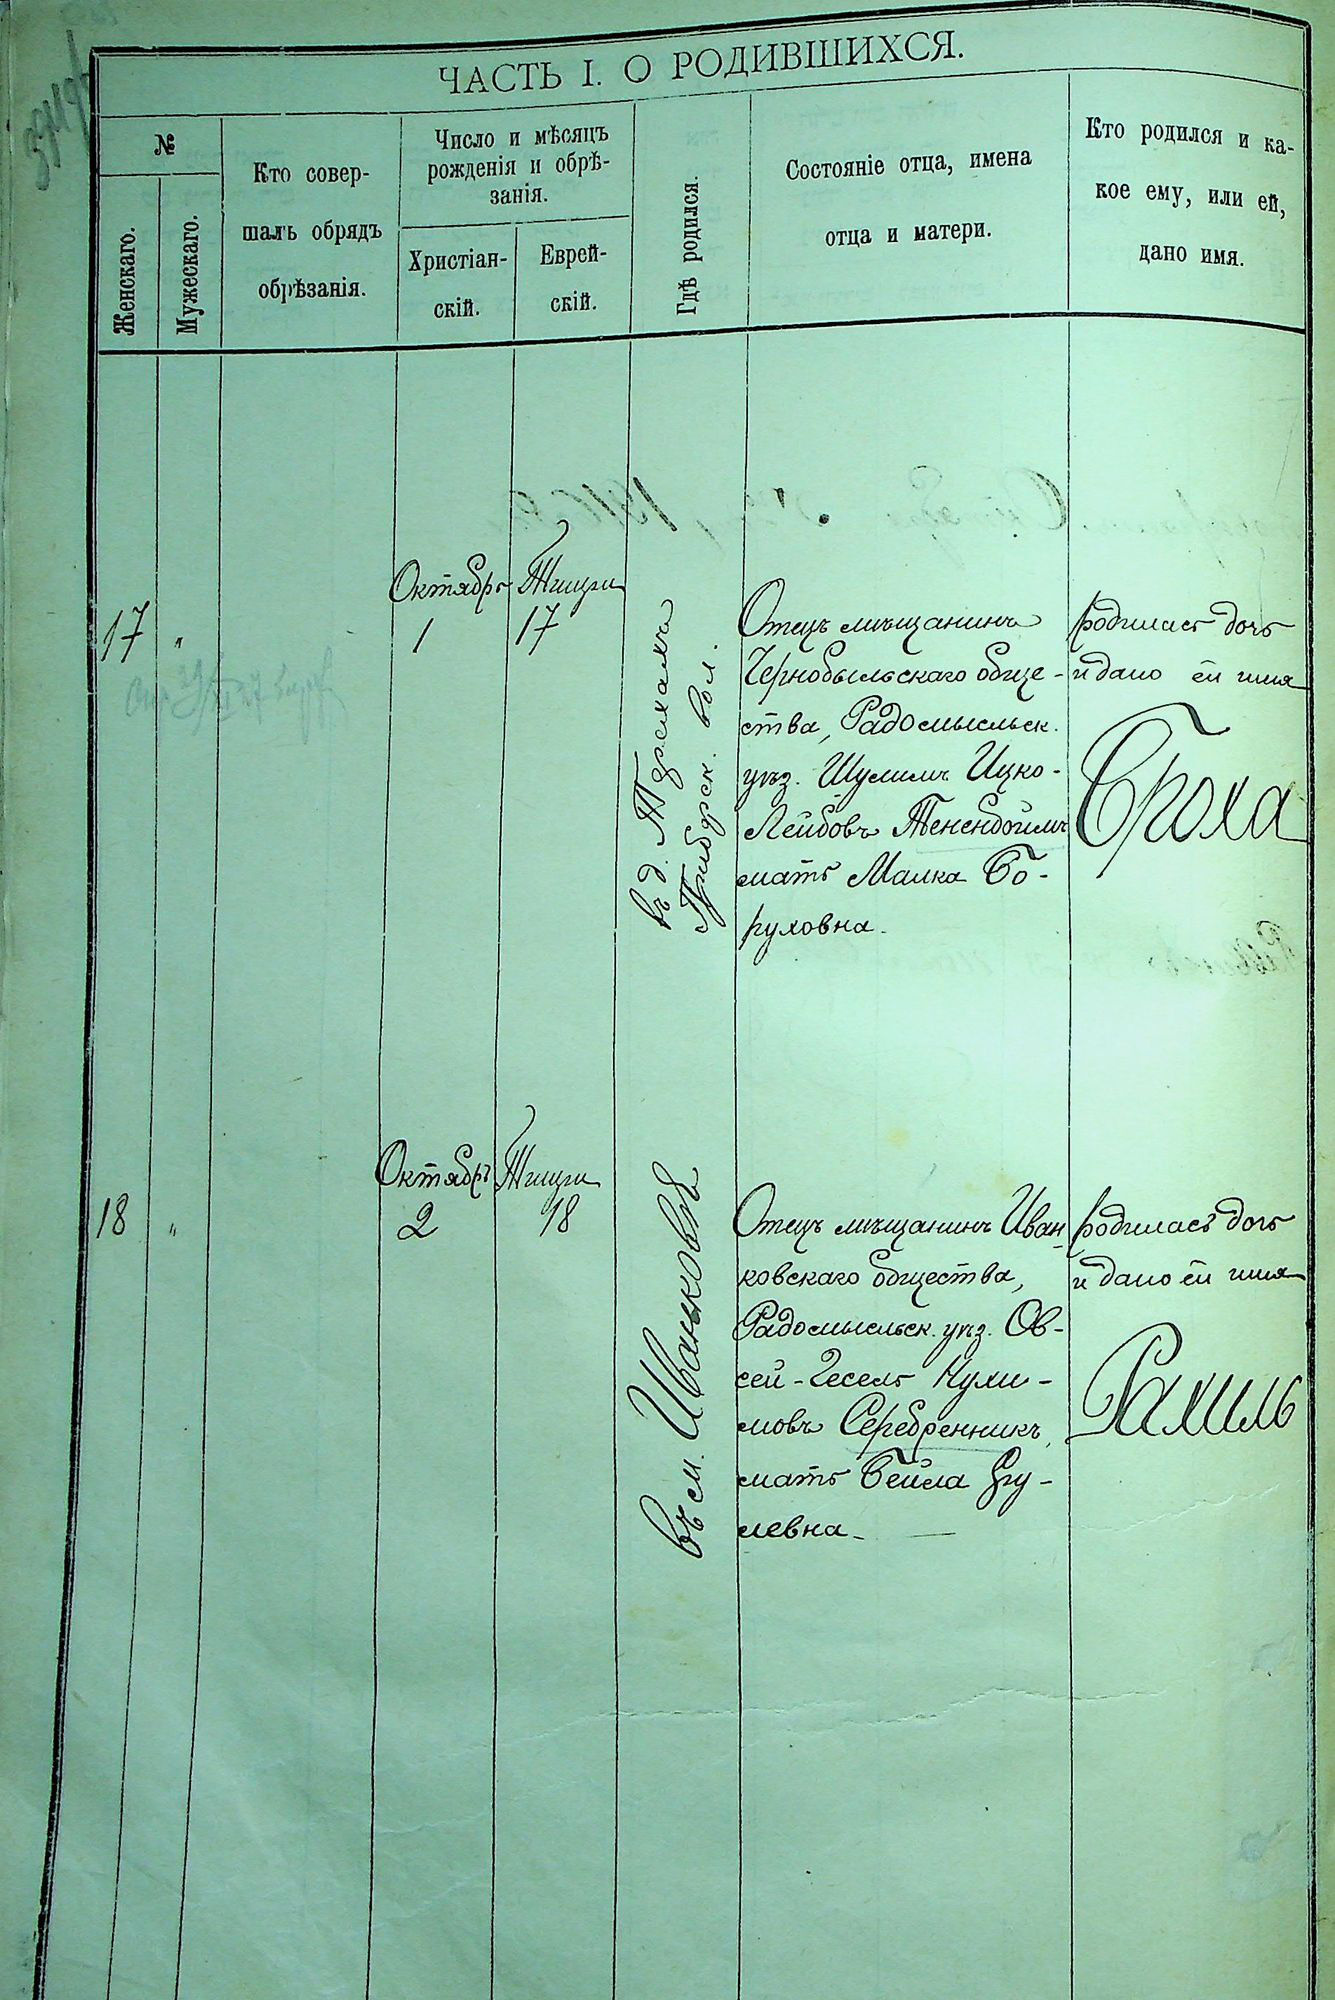 ЧАСТЬ I. О РОДИВШИХСЯ.
№
Женскаго.
Мужескаго.
Кто совер-
шалъ обрядъ
обрѣзанія.
Число и мѣсяцъ
рожденія и обрѣ-
занія.
Христіан-
скій.
Еврей-
скій.
Гдѣ родился.
Состояніе отца, имена
отца и матери.
Кто родился и ка-
кое ему, или ей,
дано имя.
17
"
Октябрь
1
Тишри
17
въ д.
вол.
Отецъ мѣщанинъ
Чернобыльскаго обще-
ства, Радомысльск.
уѣз. Шулимъ Ицко-
Лейбовъ Тененбоймъ
мать Малка Бо-
руховна.
родилась дочь
и дано ей имя
Броха
18
"
Октябрь
2
Тишри
18
въ м. Иванковѣ
Отецъ мѣщанинъ Иван-
ковскаго общества,
Радомысльск. уѣз. Ов-
сей-
Серебренникъ,
мать Бейла Сру-
левна.
родилась дочь
и дано ей имя
Рахиль